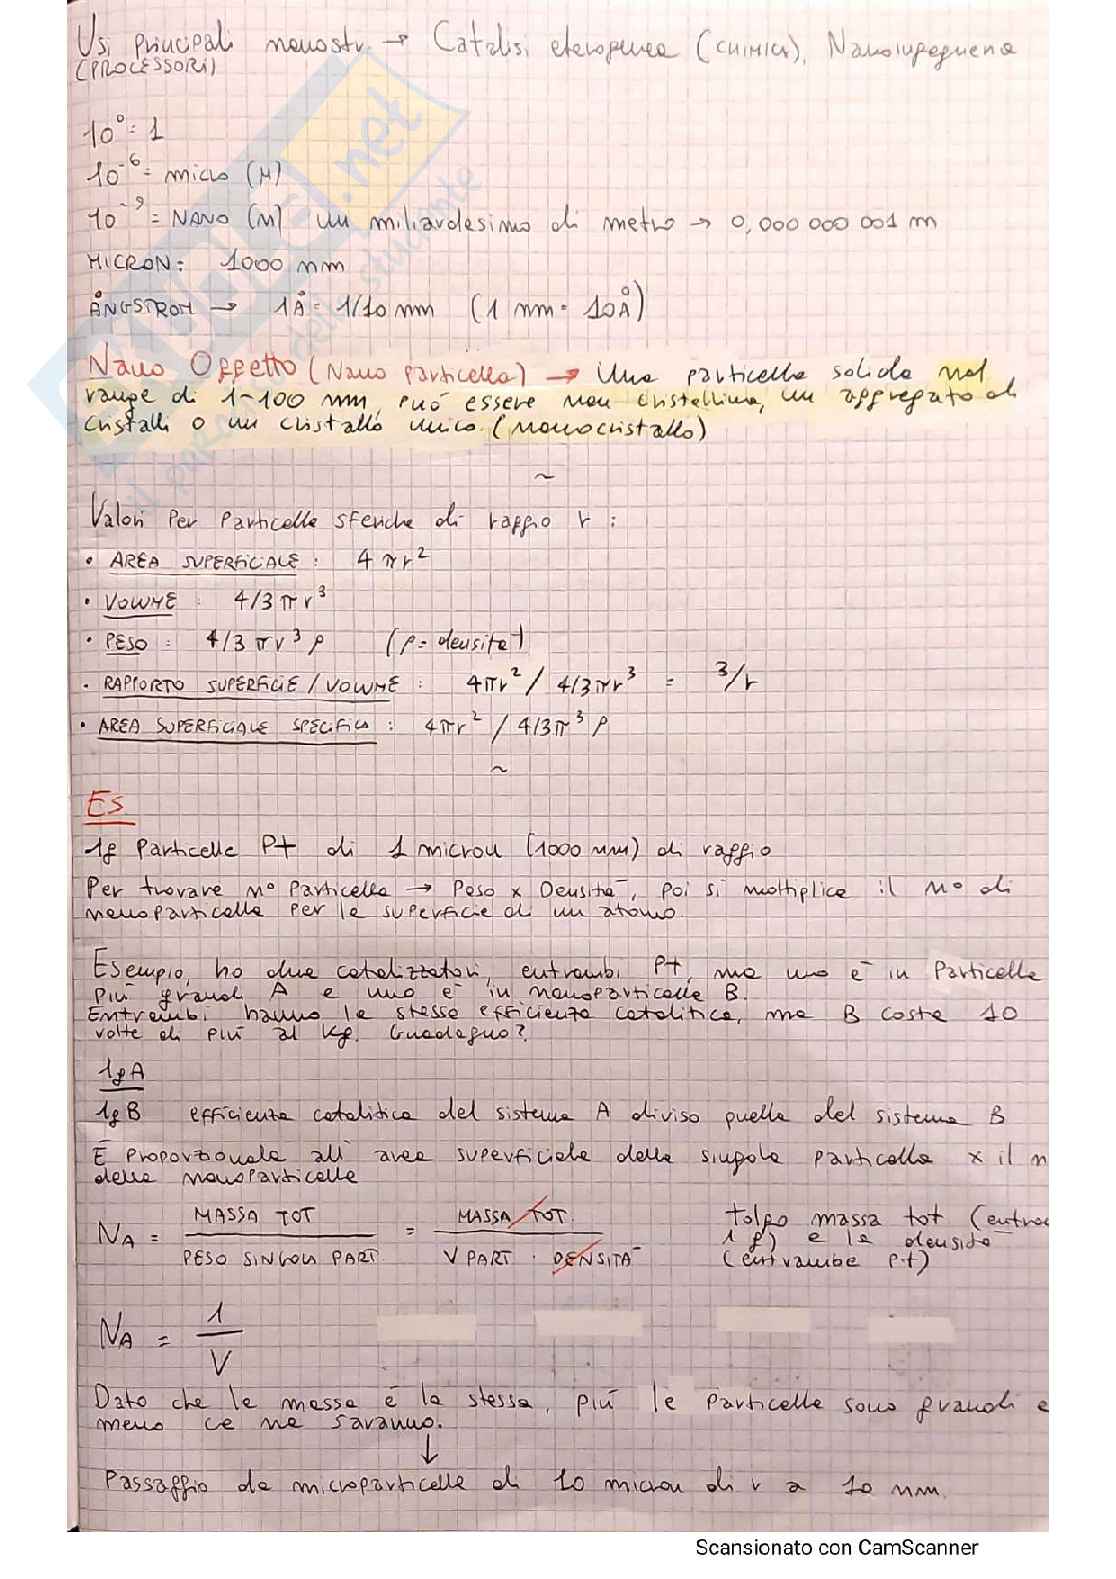 Usi principali nanostr. → Catalisi eterogenea (CHIMICA), Nanoingegneria
(PROCESSORI)
10⁰ = 1
10⁻⁶ = micro (M)
10⁻⁹ = NANO (M) un miliardesimo di metro → 0,000 000 001 m
MICRON: 1000 nm
ÅNGSTROM → 1Å = 1/10 nm (1 nm = 10Å)
Nano Oggetto (Nano particella) → Una particella solida nel
range di 1-100 nm, può essere non cristallina, un aggregato di
cristalli o un cristallo unico (monocristallo)
~
Valori Per Particelle sferiche di raggio r :
• AREA SUPERFICIALE : 4πr²
• VOLUME : 4/3πr³
• PESO : 4/3πr³ρ (ρ = densità)
• RAPPORTO SUPERFICIE/VOLUME : 4πr² / 4/3πr³ = 3/r
• AREA SUPERFICIALE SPECIFICA : 4πr² / 4/3π³ρ
~
ES
1g Particelle Pt di 1 micron (1000 nm) di raggio
Per trovare n° Particelle → Peso x Densità, poi si moltiplica il n° di
nanoparticelle per la superficie di un atomo
Esempio, ho due catalizzatori, entrambi Pt, ma uno è in Particelle
più grandi A e uno è in nanoparticelle B.
Entrambi hanno la stessa efficienza catalitica, ma B costa 10
volte di più al Kg. Guadagno?
1gA
1gB efficienza catalitica del sistema A diviso quella del sistema B
È proporzionale all' area superficiale della singola particella x il n
delle nanoparticelle
NA = MASSA TOT / PESO SINGOLA PART = MASSA TOT / V PART · DENSITÀ
Tolgo massa tot (entram
1 g) e la densità
(entrambe Pt)
NA = 1 / V
Dato che la massa è la stessa, più le particelle sono grandi e
meno ce ne saranno.
↓
Passaggio da microparticelle di 10 micron di r a 10 nm.
Scansionato con CamScanner